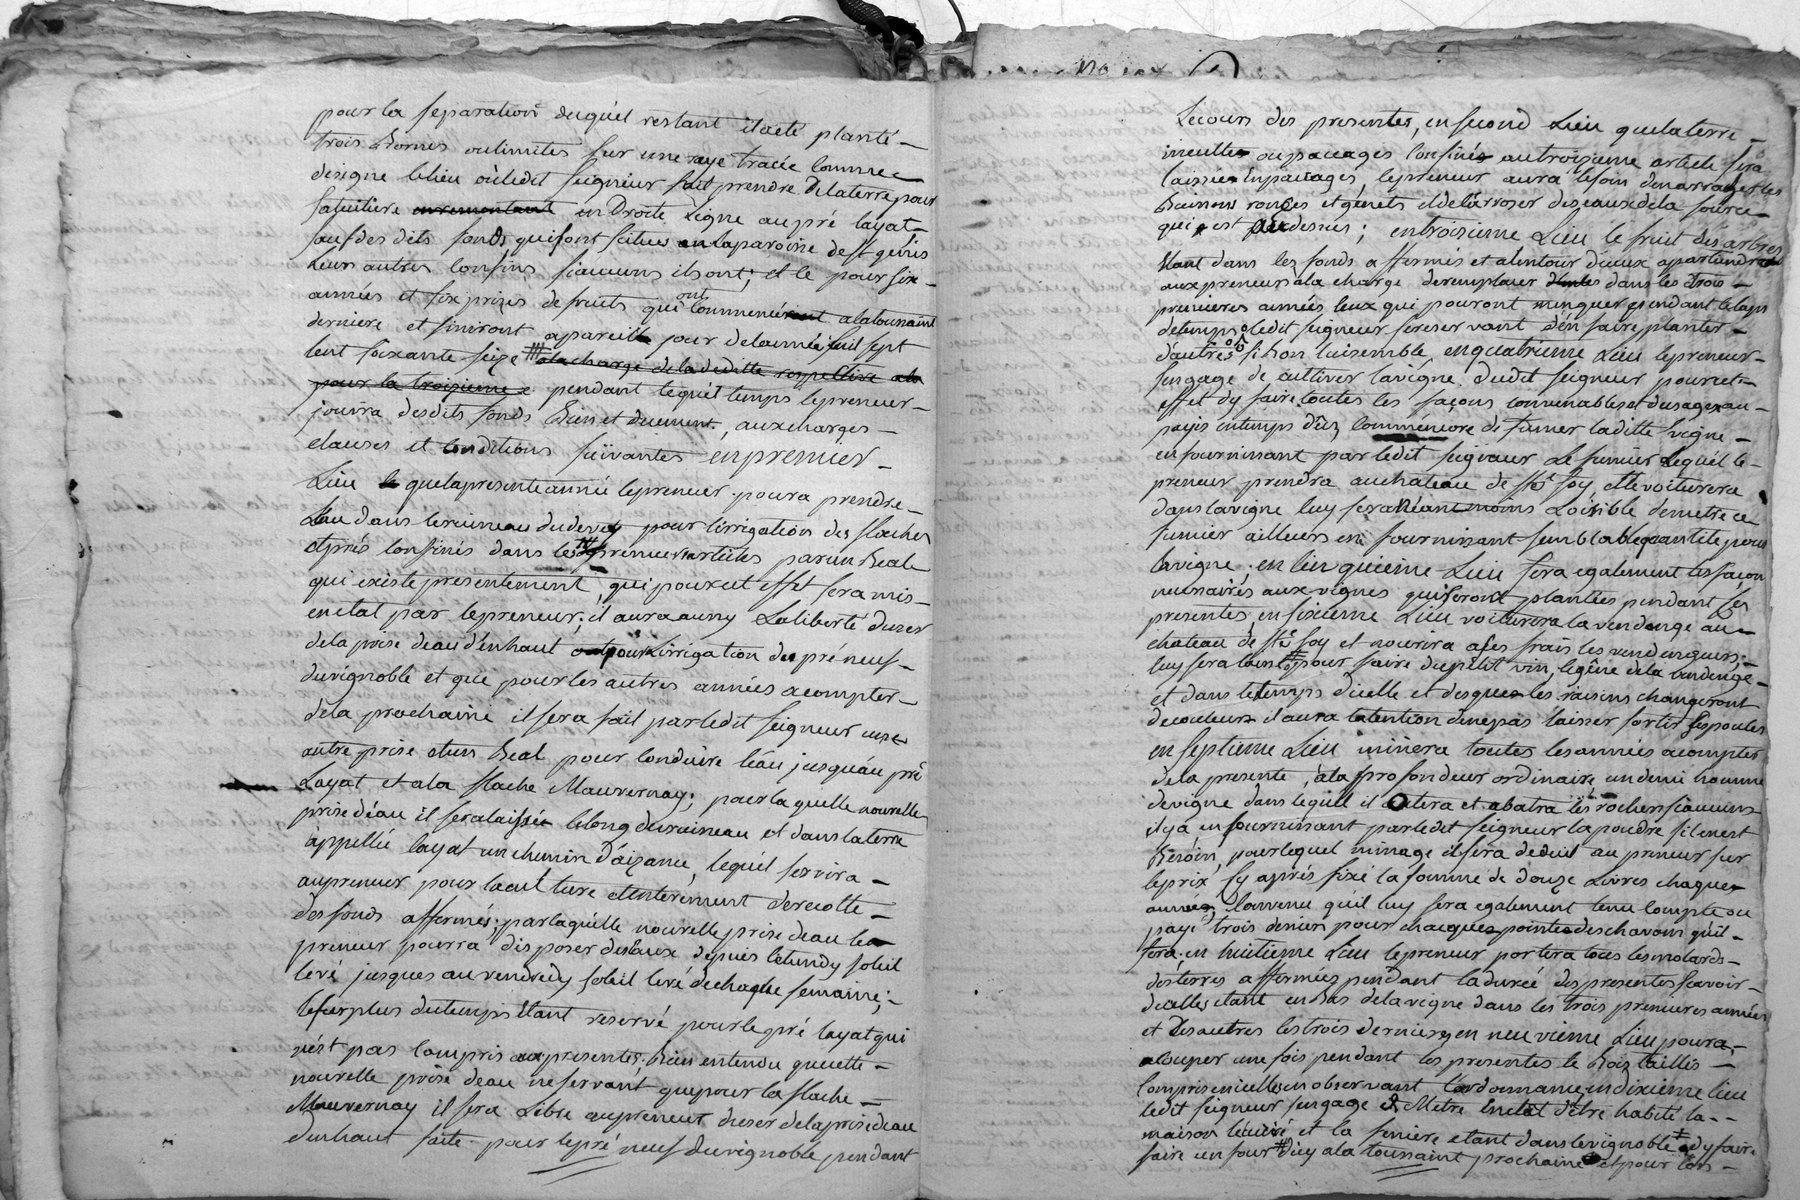 pour la separation duquél restant il a eté planté
trois Bornes ou limites sur une raye tracée comme
designe le lieu où ledit seigneur fait prendre de la terre pour
sa tuiliere en Droite Ligne au pré layat
sauf des dits fonds qui sont situés en la paroisse de st genis
Leurs autres confins si aucuns ils ont; et le pour six
années et six prises de fruits qui ont commencé a la toussaint
derniere et finiront a pareille jour de lannée mil sept
cent soixante seize a la charge de la deditte respective
pour la troizieme pendant lequél temps le preneur
jouira desdits fonds Bien et duement, aux charges
clauses et conditions suivantes en premier
Lieu que la presente année le preneur poura prendre
Leau dans le ruisseau du devay pour lirrigation des flaches
et prés confinés dans les premiers articles par un Beal
qui existe presentement, qui pour cet effet sera mis
en etat par le preneur; il aura auny La liberté duzer
de la prise deau d'énhaut pour Lirrigation du pré neuf
du vignoble et que pour les autres années a compter
de la prochaine il sera fait par ledit seigneur une
autre prise et un Beal pour conduire léau jusquáu pré
Layat et a la flache Mauvernay; pour la quelle nouvelle
prise déau il sera laissée le long du ruisseau et dans la terre
appellée layat un chemin d'áizance, lequél servira
au preneur pour la culture et enlevement de recolte
des fonds affermés; par laquélle nouvelle prise deau le
preneur pourra disposer des Eaux depuis le lundy soleil
levé jusques au vendredy soleil levé de chaque semaine;
le surplus du temps étant reservé pour le pré layat qui
nést pas compris aux presentes; Bien entendu que cette
nouvelle prise deau ne servant que pour la flache
Mauvernay il sera Libre au preneur duser de la prise deau
denhaut faite pour le pré neuf du vignoble pendant
Le cours des presentes, en second Lieu que la terre
inculte ou pacages confinés au troizieme article sera
laissée en pacages, le preneur aura le soin den arracher les
Buissons ronces et genets et de lárroser des eaux de la source
qui est au dessus; en troizieme Lieu le fruit des arbres
étant dans les fonds affermés et alentour diceux apartiendra
aux preneurs à la charge de remplacer dans les trois
premieres années ceux qui pouront manquer pendant le laps
de temps ledit seigneur se reservant d'én faire planter
d'áutres si Bon lui semble, en quatrieme Lieu le preneur
sengage de cultiver la vigne dudit seigneur pour cet
effet dy faire toutes les façons convenables et dusage au
pays en temps dûs, comméncére de fumer laditte vigne
en fournissant par ledit seigneur Le fumier Lequél le
preneur prendra au chateau de ste foy et le voiturera
dans la vigne luy sera Néant moins Loisible demettre ce
fumier ailleurs en fournissant semblable quantité pour
la vigne; en cinquieme Lieu fera egalement les façons
necessaires aux vignes qui seront plantées pendant les
presentes, en sixieme Lieu voiturera la vendange au
chateau de ste foy et nourira a ses frais les vendangeurs;
luy sera laissé pour faire du petit vin, le gêne de la vendange
et dans le temps dicelle et des que les raisins changeront
de couleurs il aura latention de ne pas laisser sortir ses poules
en septieme Lieu minera toutes les années a compter
de la presente, à la profondeur ordinaire un demi homme
de vigne dans lequél il otera et abatra les rochers si aucuns
il y a en fournissant par ledit seigneur la poudre sil en est
Besoin, pour lequel minage il sera deduit au preneur sur
le prix Cy aprés fixé la somme de douze Livres chaque
années convenu qu'il luy sera egalement tenu compte ou
payé trois deniers pour chaques pointes de chavons qu'il
fera, en huitieme Lieu le preneur portera tous les molards
des terres affermées pendant la durée des presentes scavoir
d'icelles etant en Bas de la vigne dans les trois premieres années
et Des autres les trois dernieres, en neuvieme Lieu poura
couper une fois pendant les presentes le Bois taillis
compris en icelles en observant Lordonnance, en dixieme lieu
ledit seigneur sengage de Metre En etat d'etre habité la
maison lécurie et la feniere etant dans le vignoble dy faire
faire un four dicy a la toussaint prochaine et pour lors